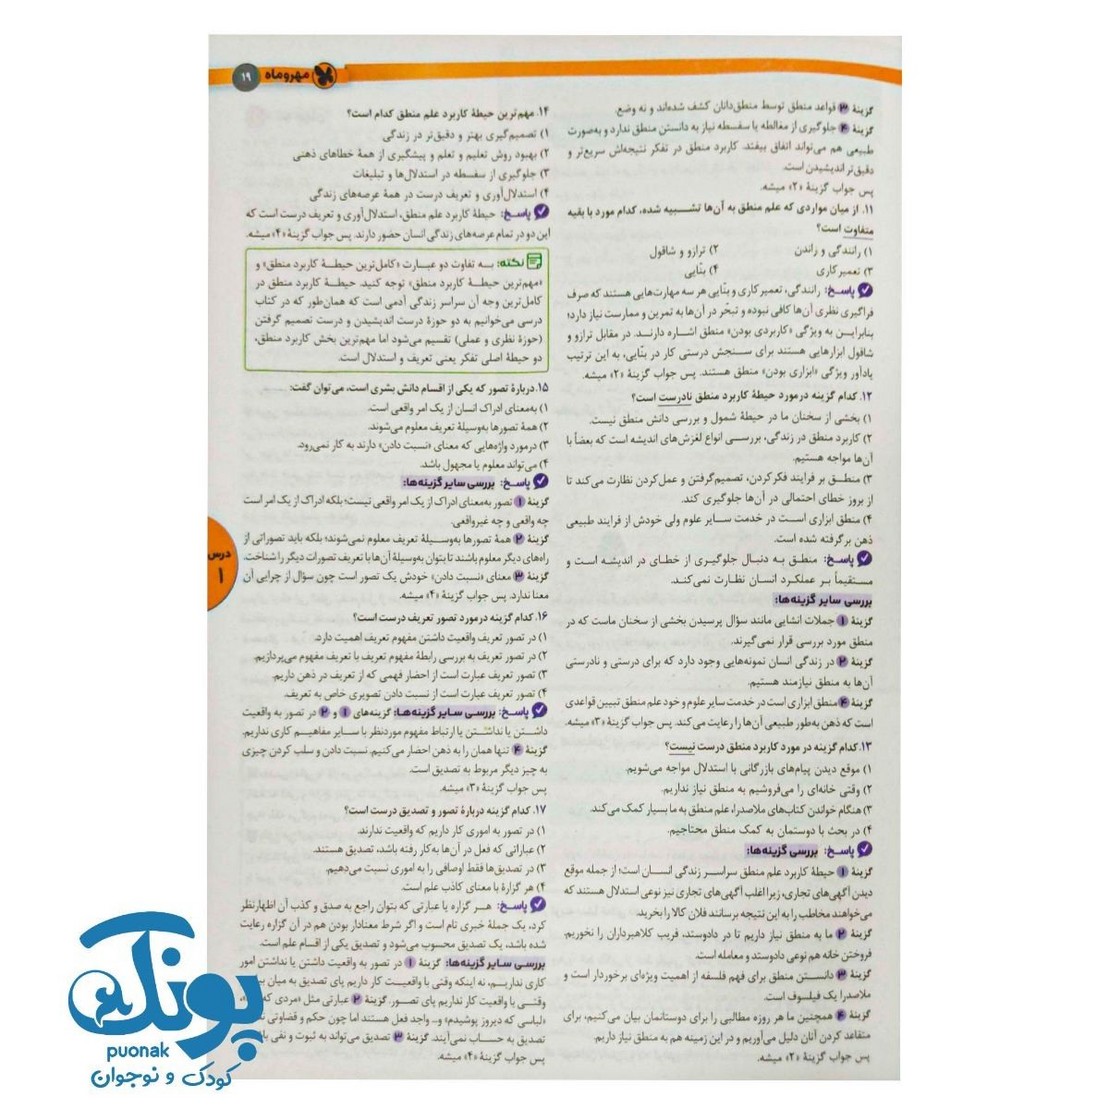 مهروماه
۱۹
گزینهٔ ۳ قواعد منطق توسط منطق‌دانان کشف شده‌اند و نه وضع.
گزینهٔ ۴ جلوگیری از مغالطه یا سفسطه نیاز به دانستن منطق ندارد و به‌صورت
طبیعی هم می‌تواند اتفاق بیفتد. کاربرد منطق در تفکر نتیجه‌اش سریع‌تر و
دقیق‌تر اندیشیدن است.
پس جواب گزینهٔ «۲» میشه.
۱۱. از میان مواردی که علم منطق به آن‌ها تشبیه شده، کدام مورد با بقیه
متفاوت است؟
۱) رانندگی و راندن
۲) ترازو و شاقول
۳) تعمیرکاری
۴) بنّایی
پاسخ: رانندگی، تعمیرکاری و بنّایی هر سه مهارت‌هایی هستند که صرف
فراگیری نظری آن‌ها کافی نبوده و تبحّر در آن‌ها به تمرین و ممارست نیاز دارد؛
بنابراین به ویژگی «کاربردی بودن» منطق اشاره دارند. در مقابل ترازو و
شاقول ابزارهایی هستند برای سنجش درستی کار در بنّایی، به این ترتیب
یادآور ویژگی «ابزاری بودن» منطق هستند. پس جواب گزینهٔ «۲» میشه.
۱۲. کدام گزینه درمورد حیطهٔ کاربرد منطق نادرست است؟
۱) بخشی از سخنان ما در حیطهٔ شمول و بررسی دانش منطق نیست.
۲) کاربرد منطق در زندگی، بررسی انواع لغزش‌های اندیشه است که بعضاً با
آن‌ها مواجه هستیم.
۳) منطق بر فرایند فکرکردن، تصمیم‌گرفتن و عمل‌کردن نظارت می‌کند تا
از بروز خطای احتمالی در آن‌ها جلوگیری کند.
۴) منطق ابزاری است در خدمت سایر علوم ولی خودش از فرایند طبیعی
ذهن برگرفته شده است.
پاسخ: منطق به دنبال جلوگیری از خطای در اندیشه است و
مستقیماً بر عملکرد انسان نظارت نمی‌کند.
بررسی سایر گزینه‌ها:
گزینهٔ ۱ جملات انشایی مانند سؤال پرسیدن بخشی از سخنان ماست که در
منطق مورد بررسی قرار نمی‌گیرند.
گزینهٔ ۲ در زندگی انسان نمونه‌هایی وجود دارد که برای درستی و نادرستی
آن‌ها به منطق نیازمند هستیم.
گزینهٔ ۴ منطق ابزاری است در خدمت سایر علوم و خود علم منطق تبیین قواعدی
است که ذهن به‌طور طبیعی آن‌ها را رعایت می‌کند. پس جواب گزینهٔ «۳» میشه.
۱۳. کدام گزینه در مورد کاربرد منطق درست نیست؟
۱) موقع دیدن پیام‌های بازرگانی با استدلال مواجه می‌شویم.
۲) وقتی خانه‌ای را می‌فروشیم به منطق نیاز نداریم.
۳) هنگام خواندن کتاب‌های ملاصدرا، علم منطق به ما بسیار کمک می‌کند.
۴) در بحث با دوستمان به کمک منطق محتاجیم.
پاسخ: بررسی گزینه‌ها:
گزینهٔ ۱ حیطهٔ کاربرد علم منطق سراسر زندگی انسان است؛ از جمله موقع
دیدن آگهی‌های تجاری، زیرا اغلب آگهی‌های تجاری نیز نوعی استدلال هستند که
می‌خواهند مخاطب را به این نتیجه برسانند فلان کالا را بخرید.
گزینهٔ ۲ ما به منطق نیاز داریم تا در دادوستد، فریب کلاهبرداران را نخوریم.
فروختن خانه هم نوعی دادوستد و معامله است.
گزینهٔ ۳ دانستن منطق برای فهم فلسفه از اهمیت ویژه‌ای برخوردار است و
ملاصدرا یک فیلسوف است.
گزینهٔ ۴ همچنین ما هر روزه مطالبی را برای دوستانمان بیان می‌کنیم، برای
متقاعد کردن آنان دلیل می‌آوریم و در این زمینه هم به منطق نیاز داریم.
پس جواب گزینهٔ «۲» میشه.
۱۴. مهم‌ترین حیطهٔ کاربرد علم منطق کدام است؟
۱) تصمیم‌گیری بهتر و دقیق‌تر در زندگی
۲) بهبود روش تعلیم و تعلم و پیشگیری از همهٔ خطاهای ذهنی
۳) جلوگیری از سفسطه در استدلال‌ها و تبلیغات
۴) استدلال‌آوری و تعریف درست در همهٔ عرصه‌های زندگی
پاسخ: حیطهٔ کاربرد علم منطق، استدلال‌آوری و تعریف درست است که
این دو در تمام عرصه‌های زندگی انسان حضور دارند. پس جواب گزینهٔ «۴» میشه.
نکته: به تفاوت دو عبارت «کامل‌ترین حیطهٔ کاربرد منطق» و
«مهم‌ترین حیطهٔ کاربرد منطق» توجه کنید. حیطهٔ کاربرد منطق در
کامل‌ترین وجه آن سراسر زندگی آدمی است که همان‌طور که در کتاب
درسی می‌خوانیم به دو حوزهٔ درست اندیشیدن و درست تصمیم گرفتن
(حوزهٔ نظری و عملی) تقسیم می‌شود اما مهم‌ترین بخش کاربرد منطق،
دو حیطهٔ اصلی تفکر یعنی تعریف و استدلال است.
۱۵. دربارهٔ تصور که یکی از اقسام دانش بشری است، می‌توان گفت:
۱) به‌معنای ادراک انسان از یک امر واقعی است.
۲) همهٔ تصورها به‌وسیلهٔ تعریف معلوم می‌شوند.
۳) درمورد واژه‌هایی که معنای «نسبت دادن» دارند به کار نمی‌رود.
۴) می‌تواند معلوم یا مجهول باشد.
پاسخ: بررسی سایر گزینه‌ها:
گزینهٔ ۱ تصور به‌معنای ادراک از یک امر واقعی نیست؛ بلکه ادراک از یک امر است
چه واقعی و چه غیرواقعی.
گزینهٔ ۲ همهٔ تصورها به‌وسیلهٔ تعریف معلوم نمی‌شوند؛ بلکه باید تصوراتی از
راه‌های دیگر معلوم باشند تا بتوان به‌وسیلهٔ آن‌ها با تعریف تصورات دیگر را شناخت.
گزینهٔ ۳ معنای «نسبت دادن» خودش یک تصور است چون سؤال از چرایی آن
معنا ندارد. پس جواب گزینهٔ «۴» میشه.
۱۶. کدام گزینه درمورد تصور تعریف درست است؟
۱) در تصور تعریف واقعیت داشتن مفهوم تعریف اهمیت دارد.
۲) در تصور تعریف به بررسی رابطهٔ مفهوم تعریف با تعریف مفهوم می‌پردازیم.
۳) تصور تعریف عبارت است از احضار فهمی که از تعریف در ذهن داریم.
۴) تصور تعریف عبارت است از نسبت دادن تصویری خاص به تعریف.
پاسخ: بررسی سایر گزینه‌ها: گزینه‌های ۱ و ۲ در تصور به واقعیت
داشتن یا نداشتن یا ارتباط مفهوم موردنظر با سایر مفاهیم کاری نداریم.
گزینهٔ ۴ تنها همان را به ذهن احضار می‌کنیم. نسبت دادن و سلب کردن چیزی
به چیز دیگر مربوط به تصدیق است.
پس جواب گزینهٔ «۳» میشه.
۱۷. کدام گزینه دربارهٔ تصور و تصدیق درست است؟
۱) در تصور به اموری کار داریم که واقعیت ندارند.
۲) عباراتی که فعل در آن‌ها به‌کار رفته باشد، تصدیق هستند.
۳) در تصدیق‌ها فقط اوصافی را به اموری نسبت می‌دهیم.
۴) هر گزارهٔ با معنای کاذب علم است.
پاسخ: هر گزاره یا عبارتی که بتوان راجع به صدق و کذب آن اظهارنظر
کرد، یک جملهٔ خبری تام است و اگر شرط معنادار بودن هم در آن گزاره رعایت
شده باشد، یک تصدیق محسوب می‌شود و تصدیق یکی از اقسام علم است.
بررسی سایر گزینه‌ها: گزینهٔ ۱ در تصور به واقعیت داشتن یا نداشتن امور
کاری نداریم، نه اینکه وقتی با واقعیت کار داریم پای تصدیق به میان
وقتی با واقعیت کار نداریم پای تصور. گزینهٔ ۲ عبارتی مثل «مردی که
«لباسی که دیروز پوشیدم» و... واجد فعل هستند اما چون حکم و قضاوتی
تصدیق به حساب نمی‌آیند. گزینهٔ ۳ تصدیق می‌تواند به ثبوت و نفی
پس جواب گزینهٔ «۴» میشه.
درس
۱
پونک
puonak
کودک و نوجوان